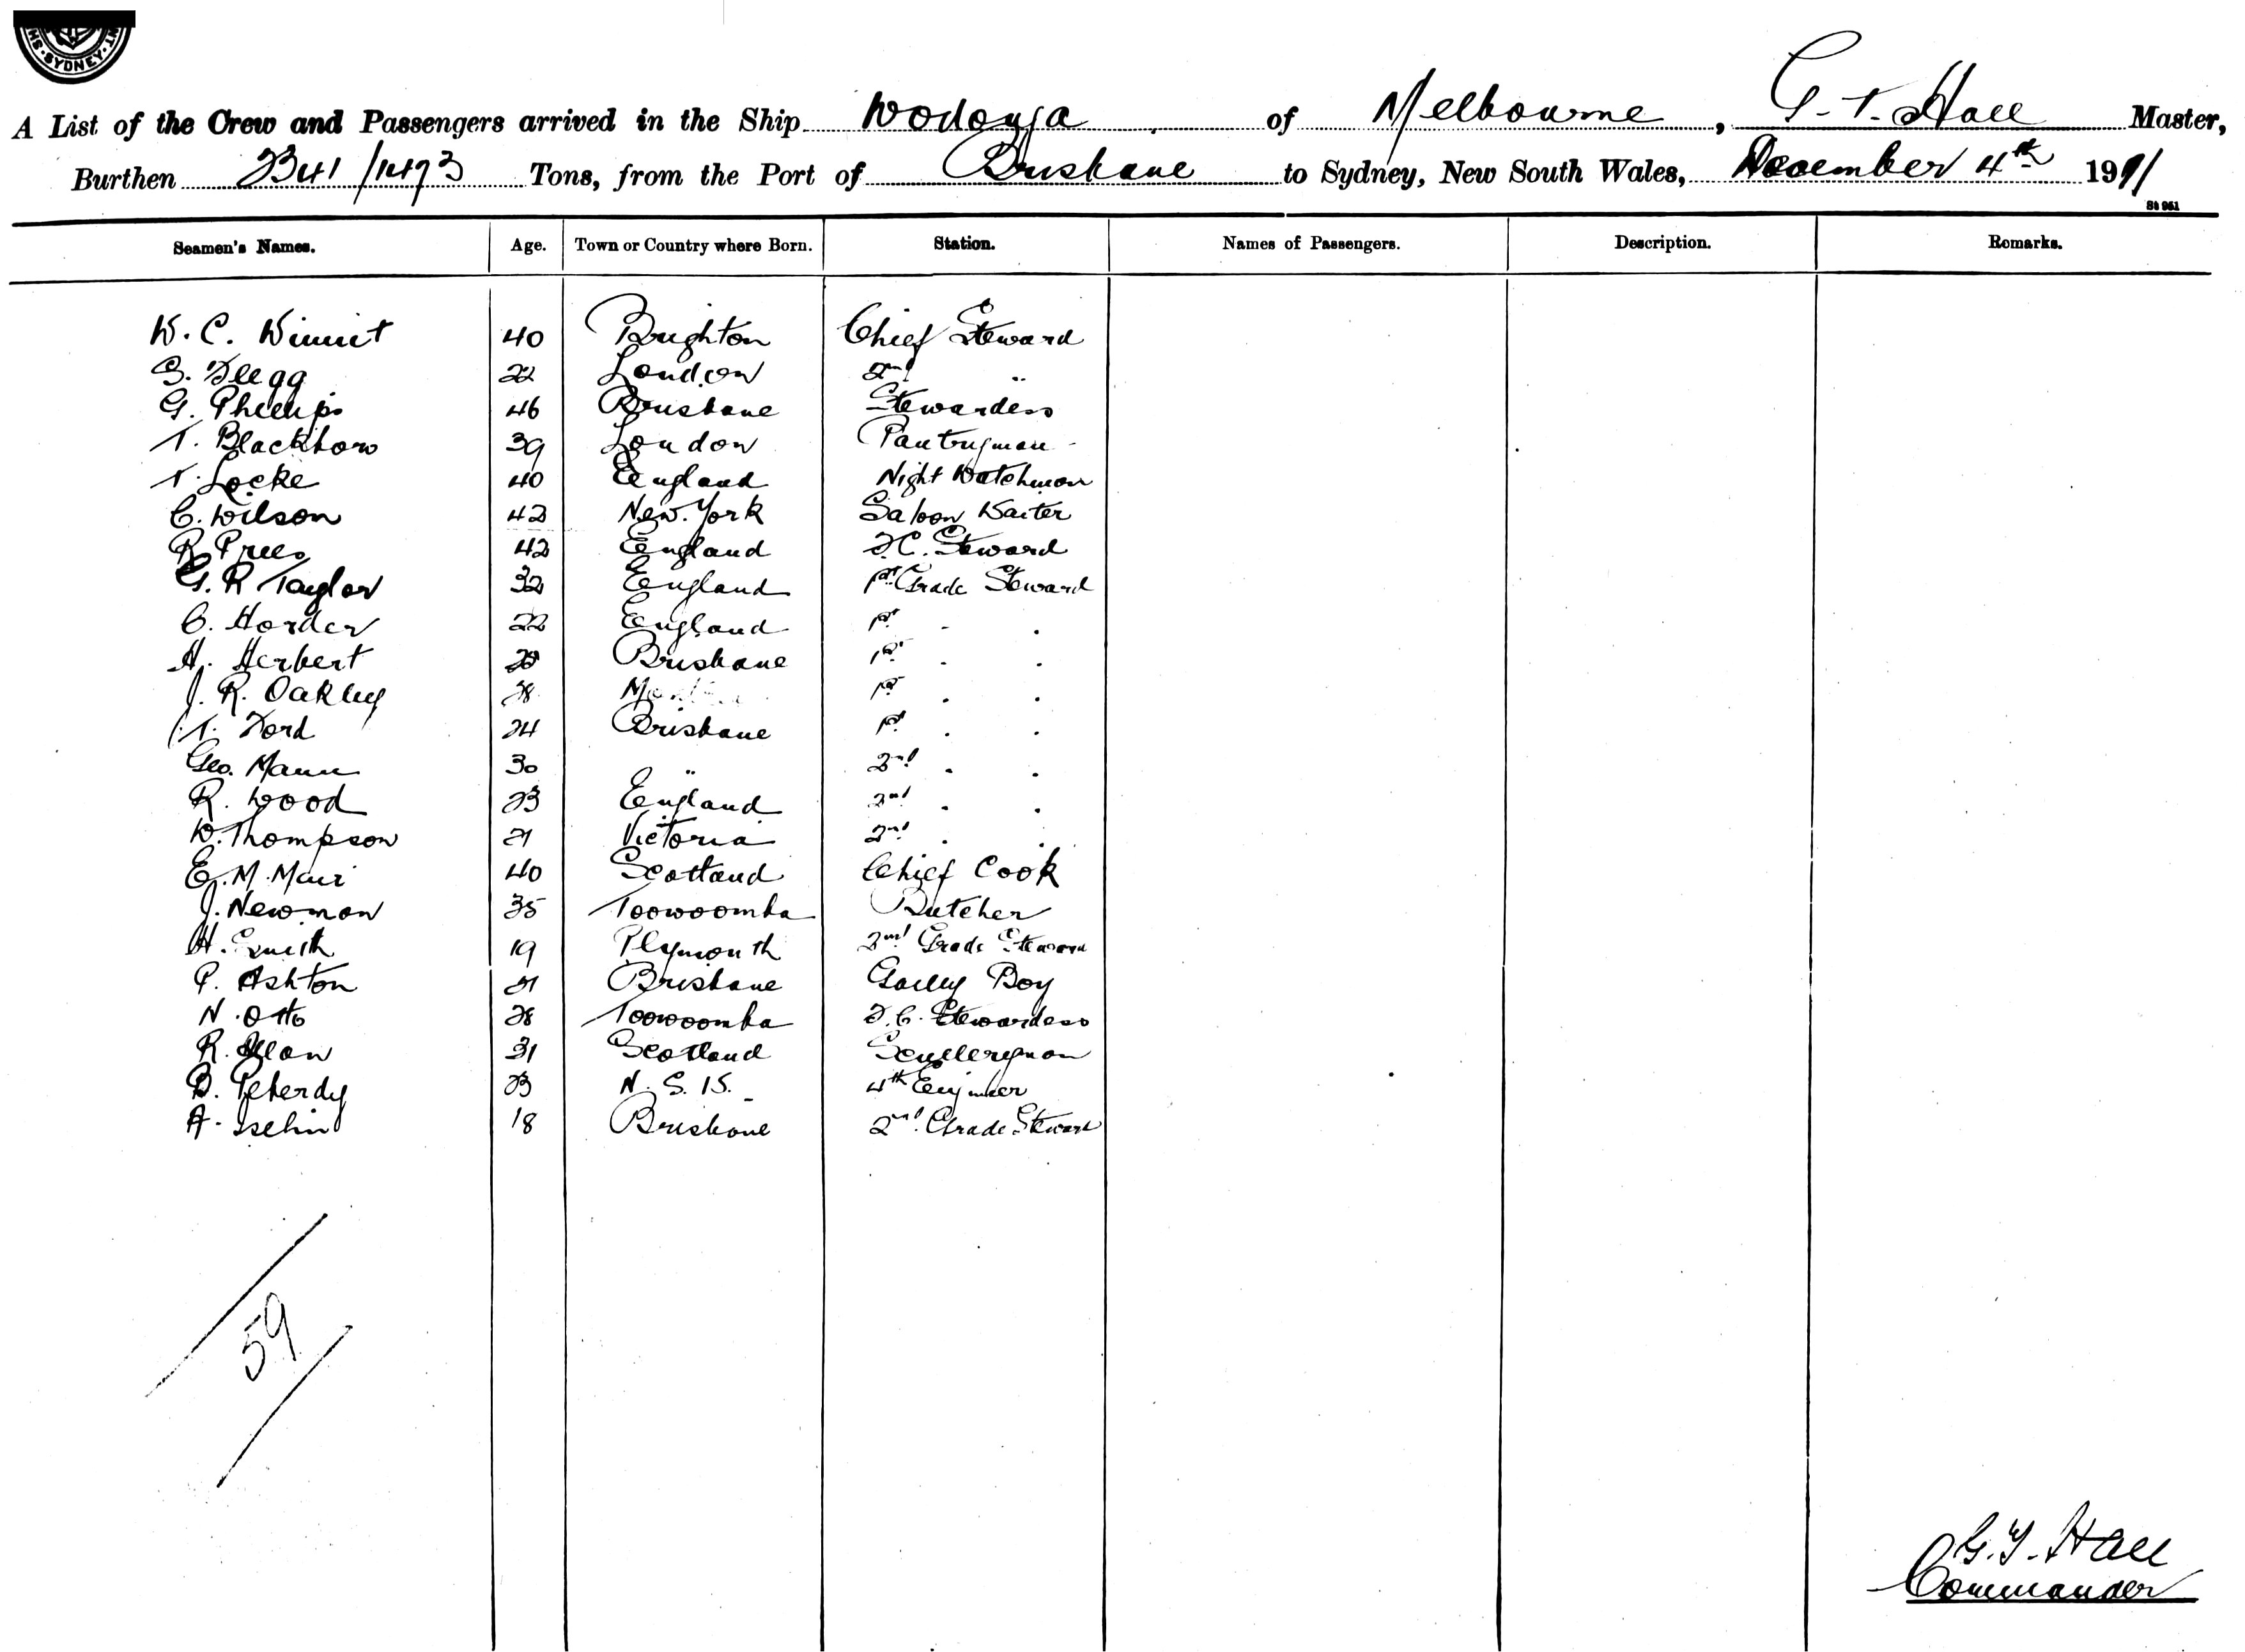 SYDNEY
A List of the Crew and Passengers arrived in the Ship Wodonga of Melbourne, G. T. Hall Master,
Burthen 2341/1493 Tons, from the Port of Brisbane to Sydney, New South Wales, December 4th 1911
St 961
Seamen's Names. Age. Town or Country where Born. Station. Names of Passengers. Description. Remarks.
W. C. 40 Brighton Chief Steward
22 London 2nd "
G. Phillips 46 Brisbane Stewardess
T. Blackbow 39 London Pantryman
T. Locke 40 England Night Watchman
C. Wilson 42 New York Saloon Waiter
R. Prees 42 England F.C. Steward
G. R Taylor 32 England 1st Grade Steward
C. Horder 22 England 1st " "
H. Herbert Brisbane 1st " "
J. R. Oakley 28 1st " "
T. Ford 24 Brisbane 1st " "
Geo. Mann 30 " 2nd " "
R. Wood 23 England 2nd " "
W. Thompson 21 Victoria 2nd " "
E. M. Muir 40 Scotland Chief Cook
J. Newman 35 Toowoomba Butcher
H. Smith 19 Plymouth 2nd Grade Steward
P. Ashton 21 Brisbane Galley Boy
N. Otto 28 Toowoomba F.C. Stewardess
R. Allan 31 Scotland Sculleryman
B. Peberdy 23 N. S. W. 4th Engineer
A. Iselin 18 Brisbane 2nd Grade Steward
59
G. T. Hall
Commander